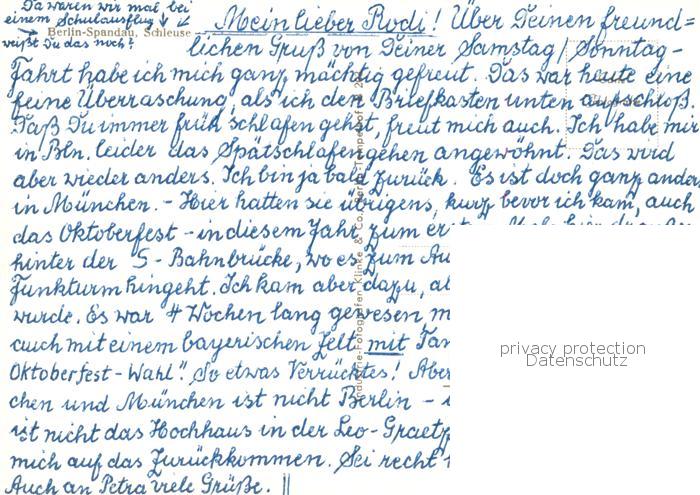 Da waren wir mal bei
einem Schulausflug
Berlin-Spandau, Schleuse
weißt Du das noch?
Mein lieber Rodi! Über Deinen freund=
lichen Gruß von Deiner Samstag/Sonntag-
Fahrt habe ich mich ganz mächtig gefreut. Das war heute eine
feine Überraschung, als ich den Briefkasten unten aufschloß.
Daß Du immer früh schlafen gehst, freut mich auch. Ich habe mir
in Bln. leider das Spätschlafengehen angewöhnt. Das wird
aber wieder anders. Ich bin ja bald zurück. Es ist doch ganz anders
in München. - Hier hatten sie übrigens, kurz bevor ich kam, auch
das Oktoberfest - in diesem Jahr zum
hinter der S-Bahnbrücke, wo es zum
Funkturm hingeht. Ich kam aber dazu,
wurde. Es war 4 Wochen lang gewesen
auch mit einem bayerischen Zelt mit
Oktoberfest-Wahl". So etwas Verrücktes! Aber
chen und München ist nicht Berlin -
ist nicht das Hochhaus in der Leo-Graetz
mich auf das Zurückkommen. Sei recht
Auch an Petra viele Grüße.
Industrie-Fotografen Klinke & Co., Berlin-Tempelhof
privacy protection
Datenschutz